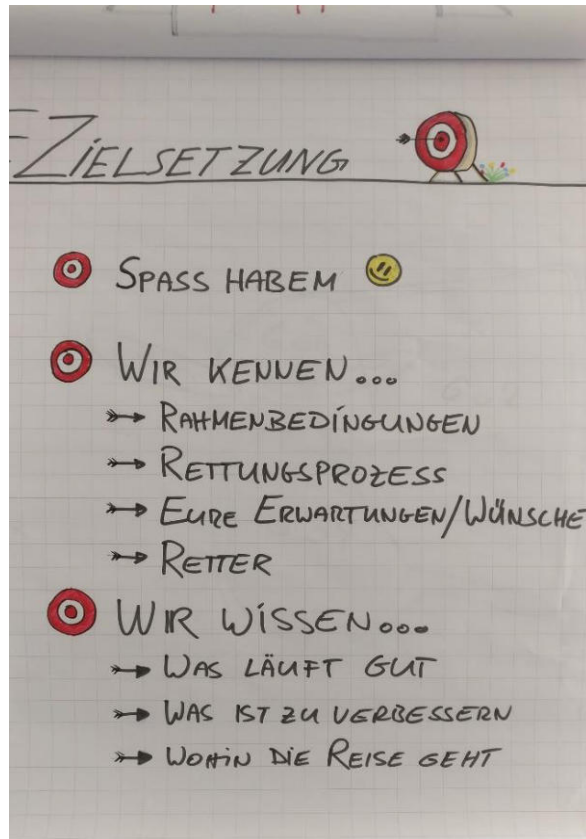 ZIELSETZUNG
SPASS HABEM
WIR KENNEN...
RAHMENBEDINGUNGEN
RETTUNGSPROZESS
EURE ERWARTUNGEN/WÜNSCHE
RETTER
WIR WISSEN...
WAS LÄUFT GUT
WAS IST ZU VERBESSERN
WOHIN DIE REISE GEHT